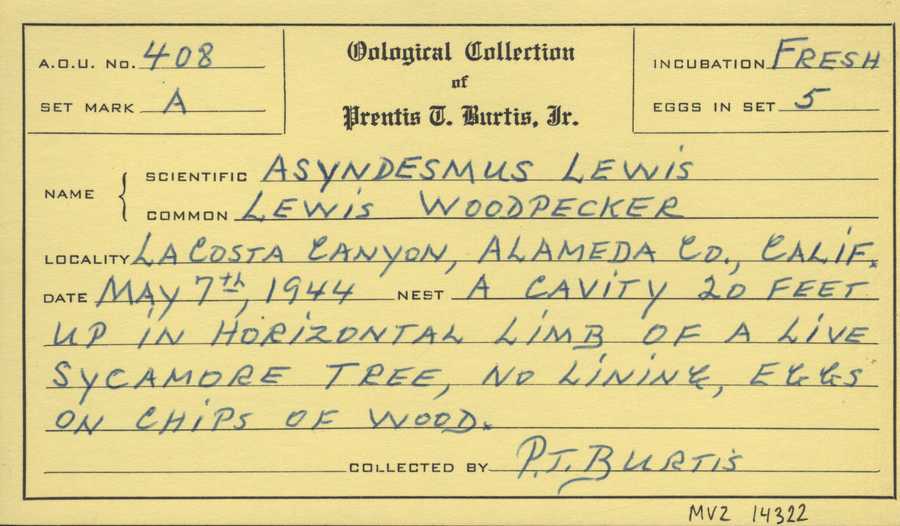 A.O.U. No. 408
Oological Collection
INCUBATION FRESH
SET MARK A
of
EGGS IN SET 5
Prentis T. Burtis, Jr.
NAME
SCIENTIFIC ASYNDESMUS LEWIS
COMMON LEWIS WOODPECKER
LOCALITY LA COSTA CANYON, ALAMEDA CO., CALIF.
DATE MAY 7th, 1944 NEST A CAVITY 20 FEET
UP IN HORIZONTAL LIMB OF A LIVE
SYCAMORE TREE, NO LINING, EGGS
ON CHIPS OF WOOD.
COLLECTED BY P.T. BURTIS
MVZ 14322